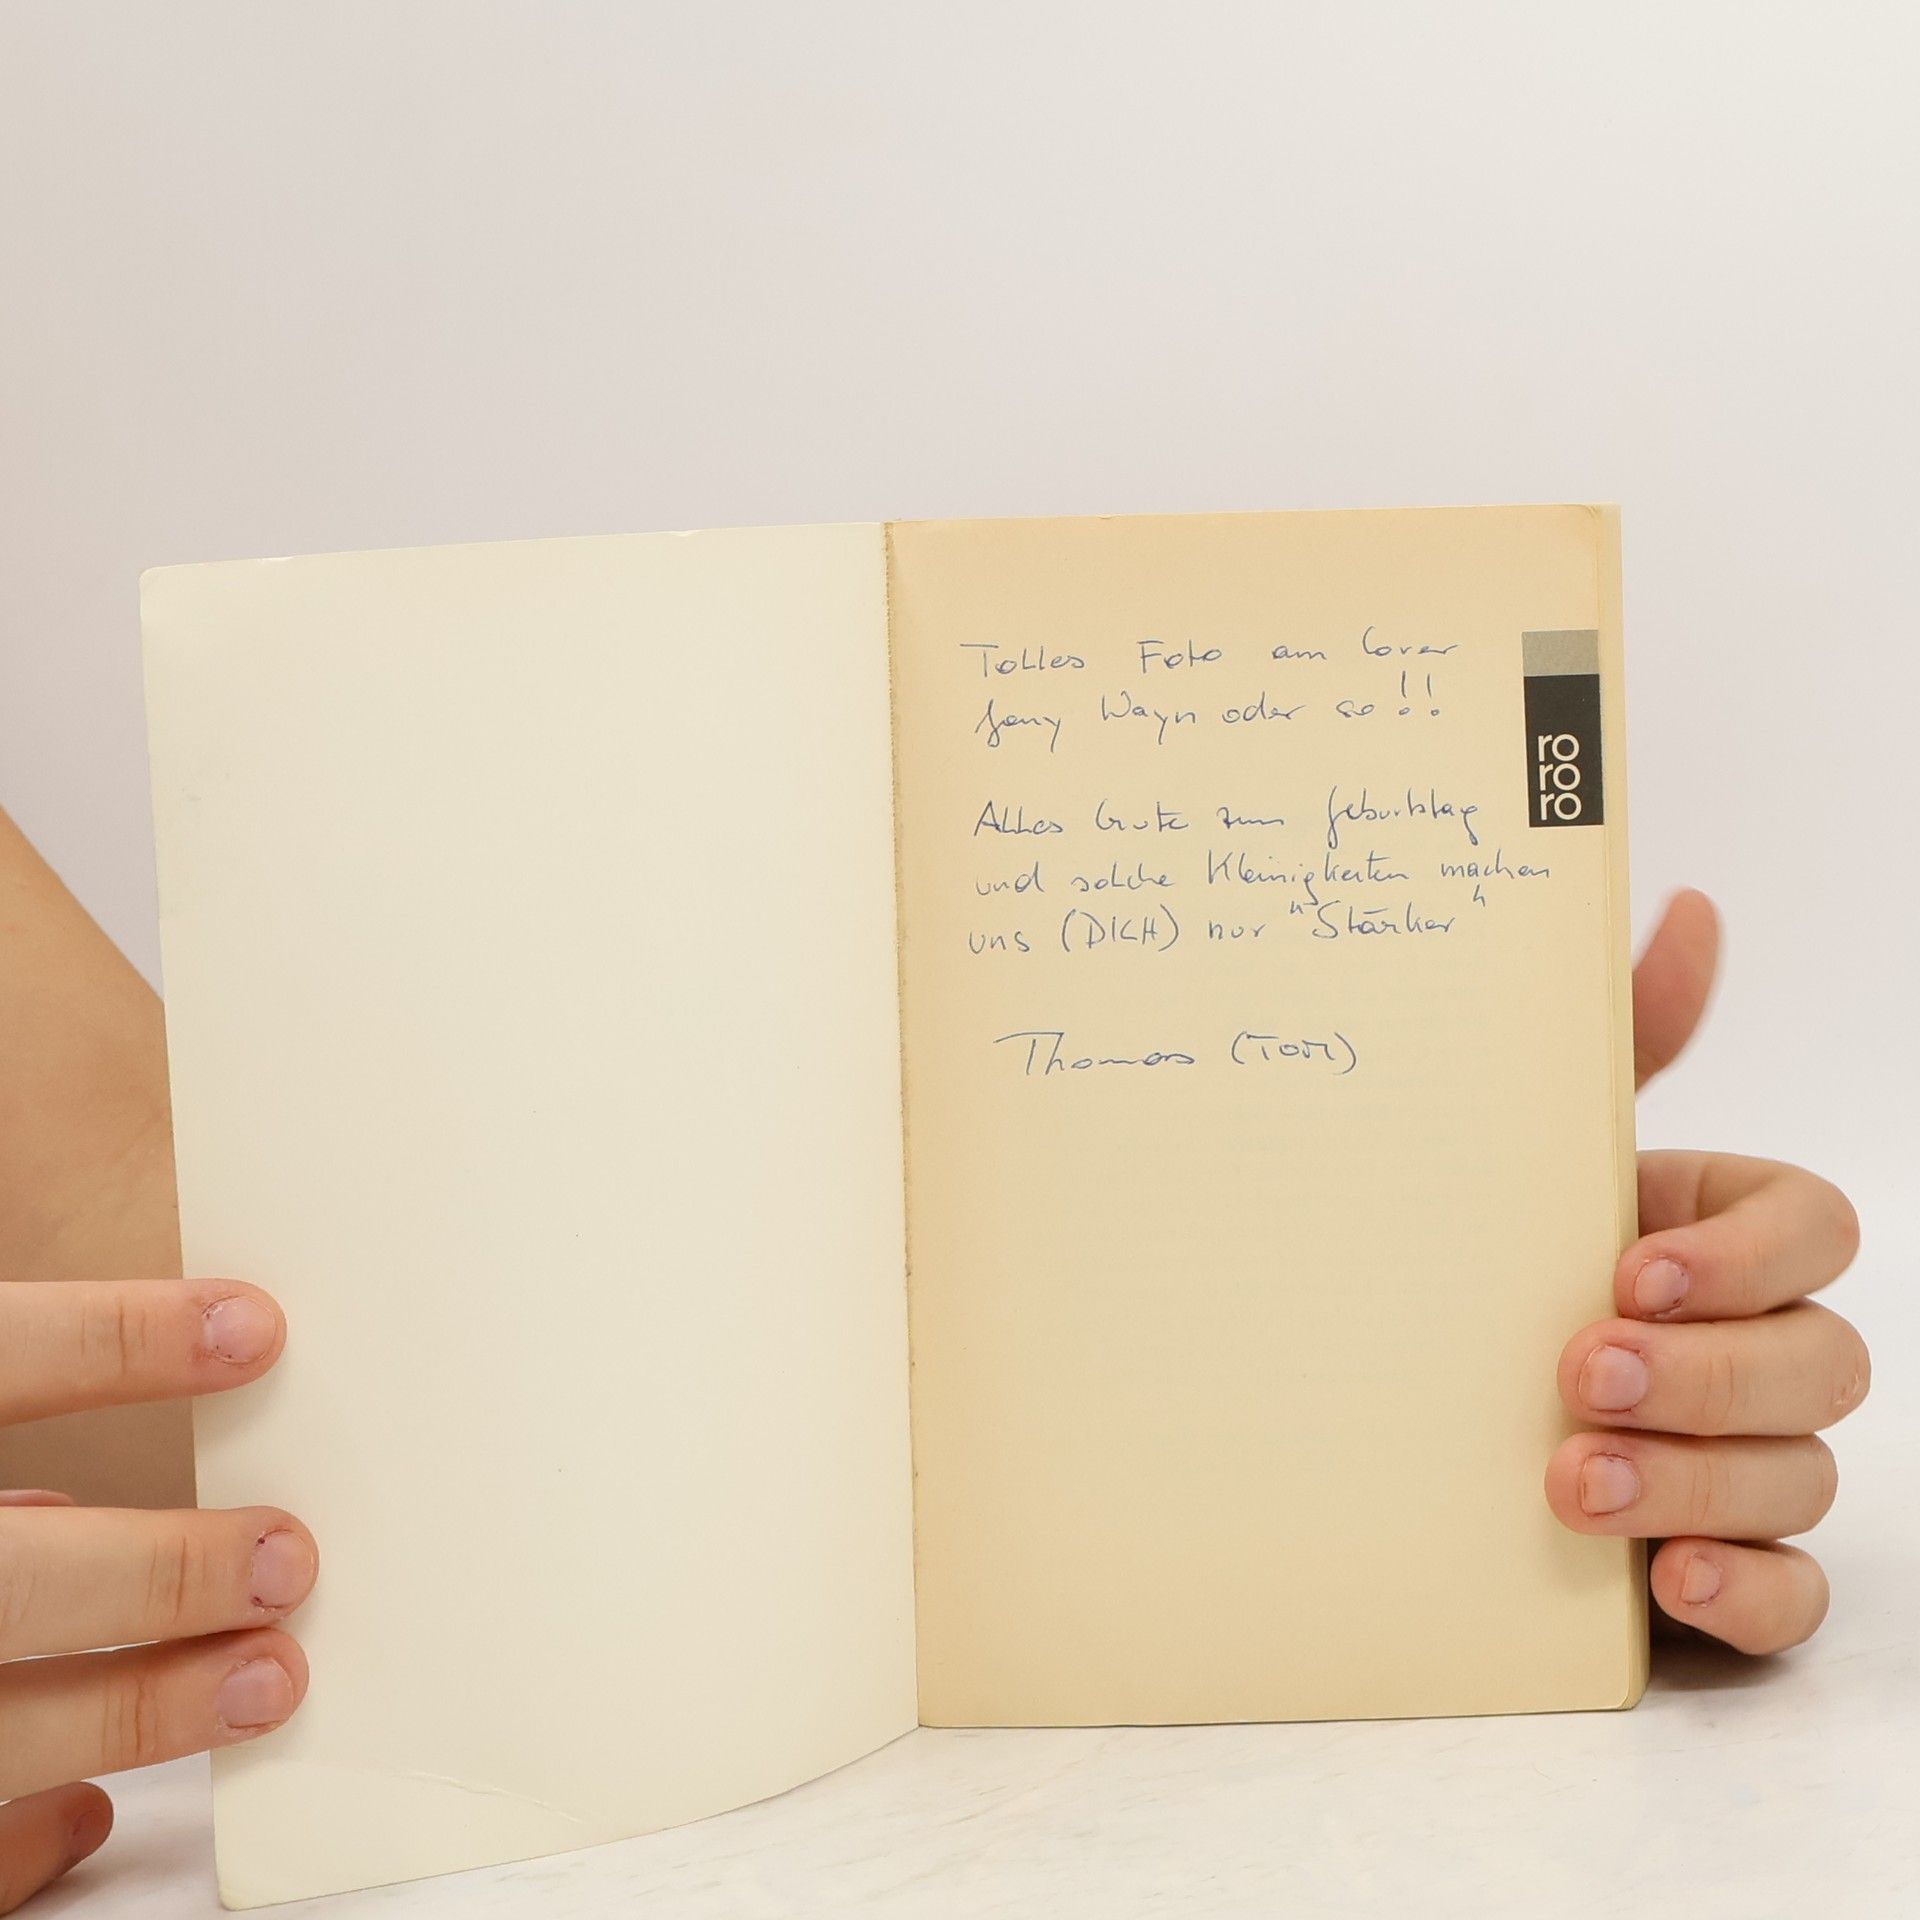 Tolles Foto am Cover
Jony Wayn oder so!!
Alles Gute zum Geburtstag
und solche Kleinigkeiten machen
uns (DICH) nur "Stärker"
Thomas (TOM)
ro
ro
ro